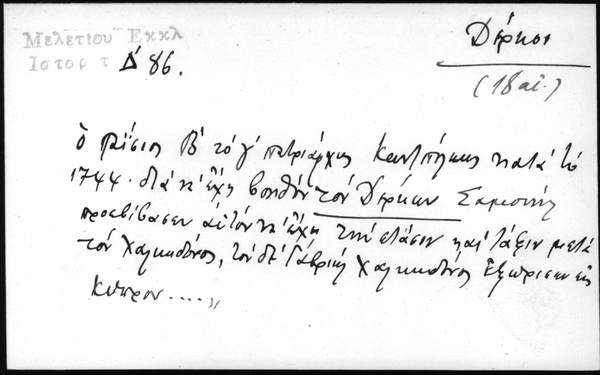 Μελετίου Εκκλ
Ιστορ τ Δ' 86.
Δέρκοι
(18 αἰ.)
ὁ Παΐσιος Β' τὸ γ' πατριάρχης Κωνπόλεως κατὰ τὸ
1744. διὰ ν' ἔχῃ βοηθὸν τὸν Δέρκων Σαμουὴλ
προεβίβασεν αὐτὸν ν' ἔχῃ τὴν στάσιν καὶ τάξιν μετὰ
τὸν Χαλκηδόνος, τὸν δὲ Γαβριὴλ Χαλκηδόνος ἐξώρισεν εἰς
Κύπρον....,,